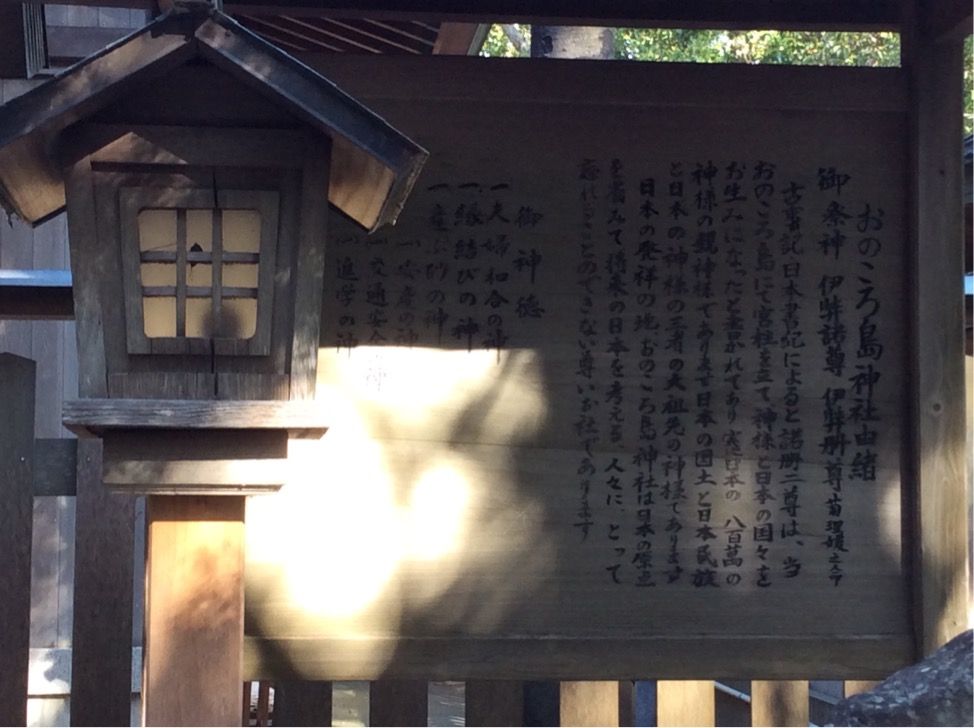 おのころ島神社由緒
御祭神 伊弉諾尊 伊弉冊尊 菊理媛
古事記日本書紀によると諾冊二尊は、当
おのころ島にて宮柱を立て神様と日本の国々を
お生みになったと書かれてあり実に日本の八百萬の
神様の親神様であります日本の国土と日本民族
と日本の神様の三者の大祖先の神様であります
日本の発祥の地おのころ島神社は日本の原点
を省みて将来の日本を考える、人々に、とって
忘れることのできない尊いお社であります
御神徳
一夫婦和合の神
一縁結びの神
一産ぶ砂の神
一安産の神
一交通安全の神
一進学の神